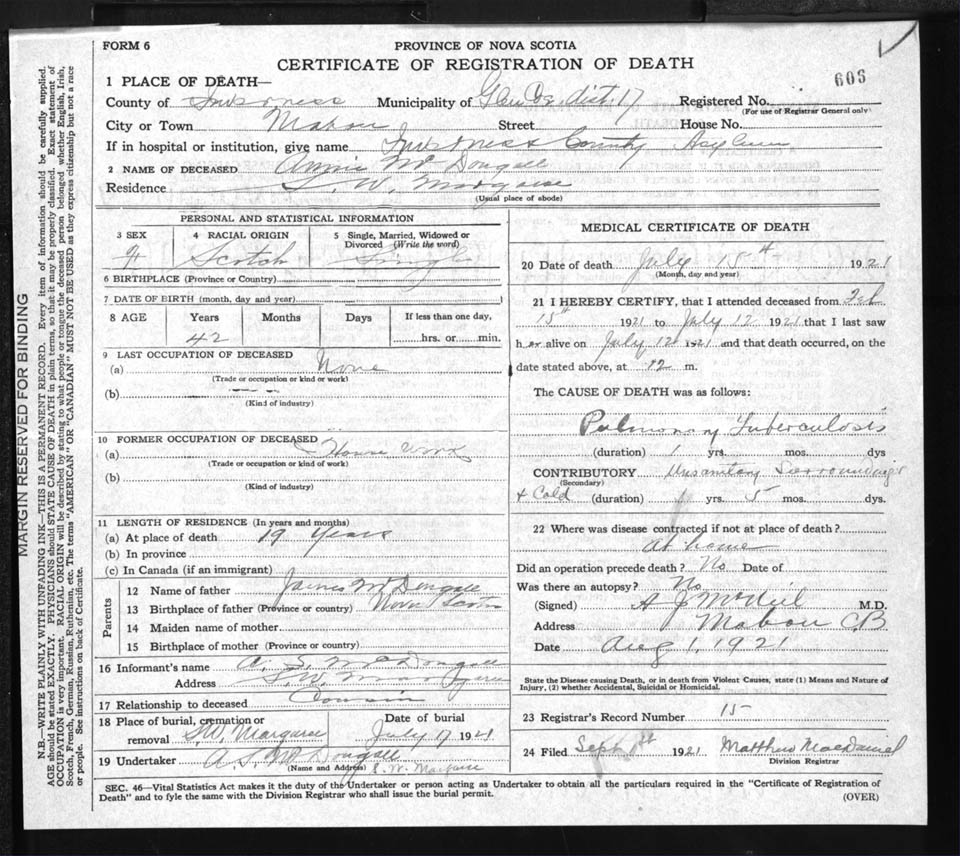 FORM 6
PROVINCE OF NOVA SCOTIA
CERTIFICATE OF REGISTRATION OF DEATH
603
1 PLACE OF DEATH—
County of Inverness Municipality of Glencoe dist. 17 Registered No.
(For use of Registrar General only)
City or Town Mabou Street House No.
If in hospital or institution, give name Inverness County Asylum
2 NAME OF DECEASED Annie McDougall
Residence S. W. Margaree
(Usual place of abode)
PERSONAL AND STATISTICAL INFORMATION
3 SEX 4 RACIAL ORIGIN 5 Single, Married, Widowed or Divorced (Write the word)
F Scotch Single
6 BIRTHPLACE (Province or Country)
7 DATE OF BIRTH (month, day and year)
8 AGE Years Months Days If less than one day,
42 hrs. or min.
9 LAST OCCUPATION OF DECEASED
(a) None
(Trade or occupation or kind or work)
(b)
(Kind of industry)
10 FORMER OCCUPATION OF DECEASED
(a) House work
(Trade or occupation or kind of work)
(b)
(Kind of industry)
11 LENGTH OF RESIDENCE (In years and months)
(a) At place of death 19 Years
(b) In province
(c) In Canada (if an immigrant)
Parents
12 Name of father James McDougall
13 Birthplace of father (Province or country) Nova Scotia
14 Maiden name of mother
15 Birthplace of mother (Province or country)
16 Informant's name A. S. McDougall
Address S.W. Margaree
17 Relationship to deceased Cousin
18 Place of burial, cremation or removal S.W. Margaree Date of burial July 17 1921
19 Undertaker A. S. McDougall
(Name and Address) S. W. Margaree
MEDICAL CERTIFICATE OF DEATH
20 Date of death July 15th 1921
(Month, day and year)
21 I HEREBY CERTIFY, that I attended deceased from Feb
15th 1921 to July 12 1921 that I last saw
her alive on July 12 1921 and that death occurred, on the
date stated above, at 12 m.
The CAUSE OF DEATH was as follows:
Pulmonary Tuberculosis
(duration) 1 yrs. mos. dys
CONTRIBUTORY Unsanitary Surroundings
(Secondary)
& Cold (duration) 1 yrs. 5 mos. dys.
22 Where was disease contracted if not at place of death?
At home
Did an operation precede death? No Date of
Was there an autopsy? No
(Signed) A J McNeil M.D.
Address Mabou CB
Date Aug 1, 1921
State the Disease causing Death, or in death from Violent Causes, state (1) Means and Nature of
Injury, (2) whether Accidental, Suicidal or Homicidal.
23 Registrar's Record Number 15
24 Filed Sept 1921 Matthew MacDaniel
Division Registrar
SEC. 46—Vital Statistics Act makes it the duty of the Undertaker or person acting as Undertaker to obtain all the particulars required in the "Certificate of Registration of
Death" and to fyle the same with the Division Registrar who shall issue the burial permit.
(OVER)
MARGIN RESERVED FOR BINDING
N.B.—WRITE PLAINLY WITH UNFADING INK—THIS IS A PERMANENT RECORD. Every item of information should be carefully supplied.
AGE should be stated EXACTLY. PHYSICIANS should STATE CAUSE OF DEATH in plain terms, so that it may be properly classified. Exact statement of
OCCUPATION is very important. RACIAL ORIGIN will be described by stating to what people or tongue the deceased person belonged whether English, Irish,
Scotch, French, German, Russian, Ruthenian, etc. The terms "AMERICAN" OR "CANADIAN" MUST NOT BE USED as they express citizenship but not a race
or people. See instructions on back of Certificate.